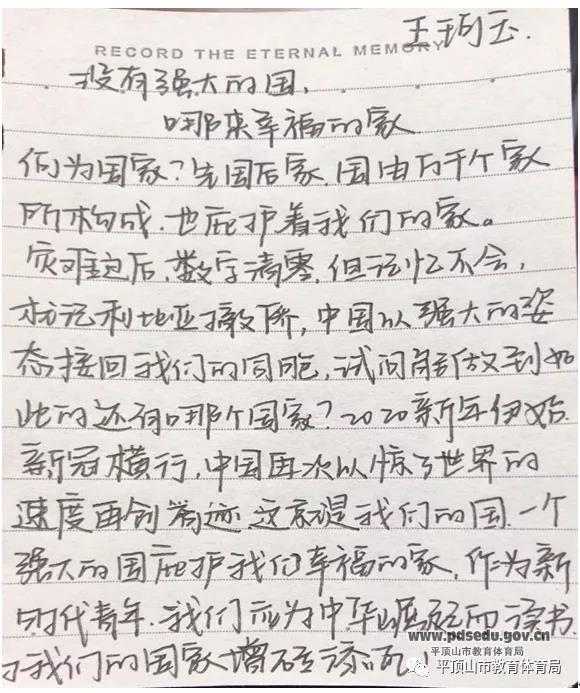 王珂玉.
RECORD THE ETERNAL MEMORY
没有强大的国,
哪来幸福的家
何为国家?先国后家.国由万千个家
所构成.也庇护着我们的家。
灾难过后,数字清零,但记忆不会,
利地亚撤侨,中国以强大的姿
态接回我们的同胞,试问能做到如
此的还有哪个国家?2020新年伊始.
新冠横行,中国再次以惊了世界的
速度再创奇迹.这就是我们的国.一个
强大的国庇护我们幸福的家,作为新
时代青年.我们应为中华崛起而读书
我们的国家增砖添瓦
www.pdsedu.gov.cn
平顶山市教育体育局
平顶山市教育体育局